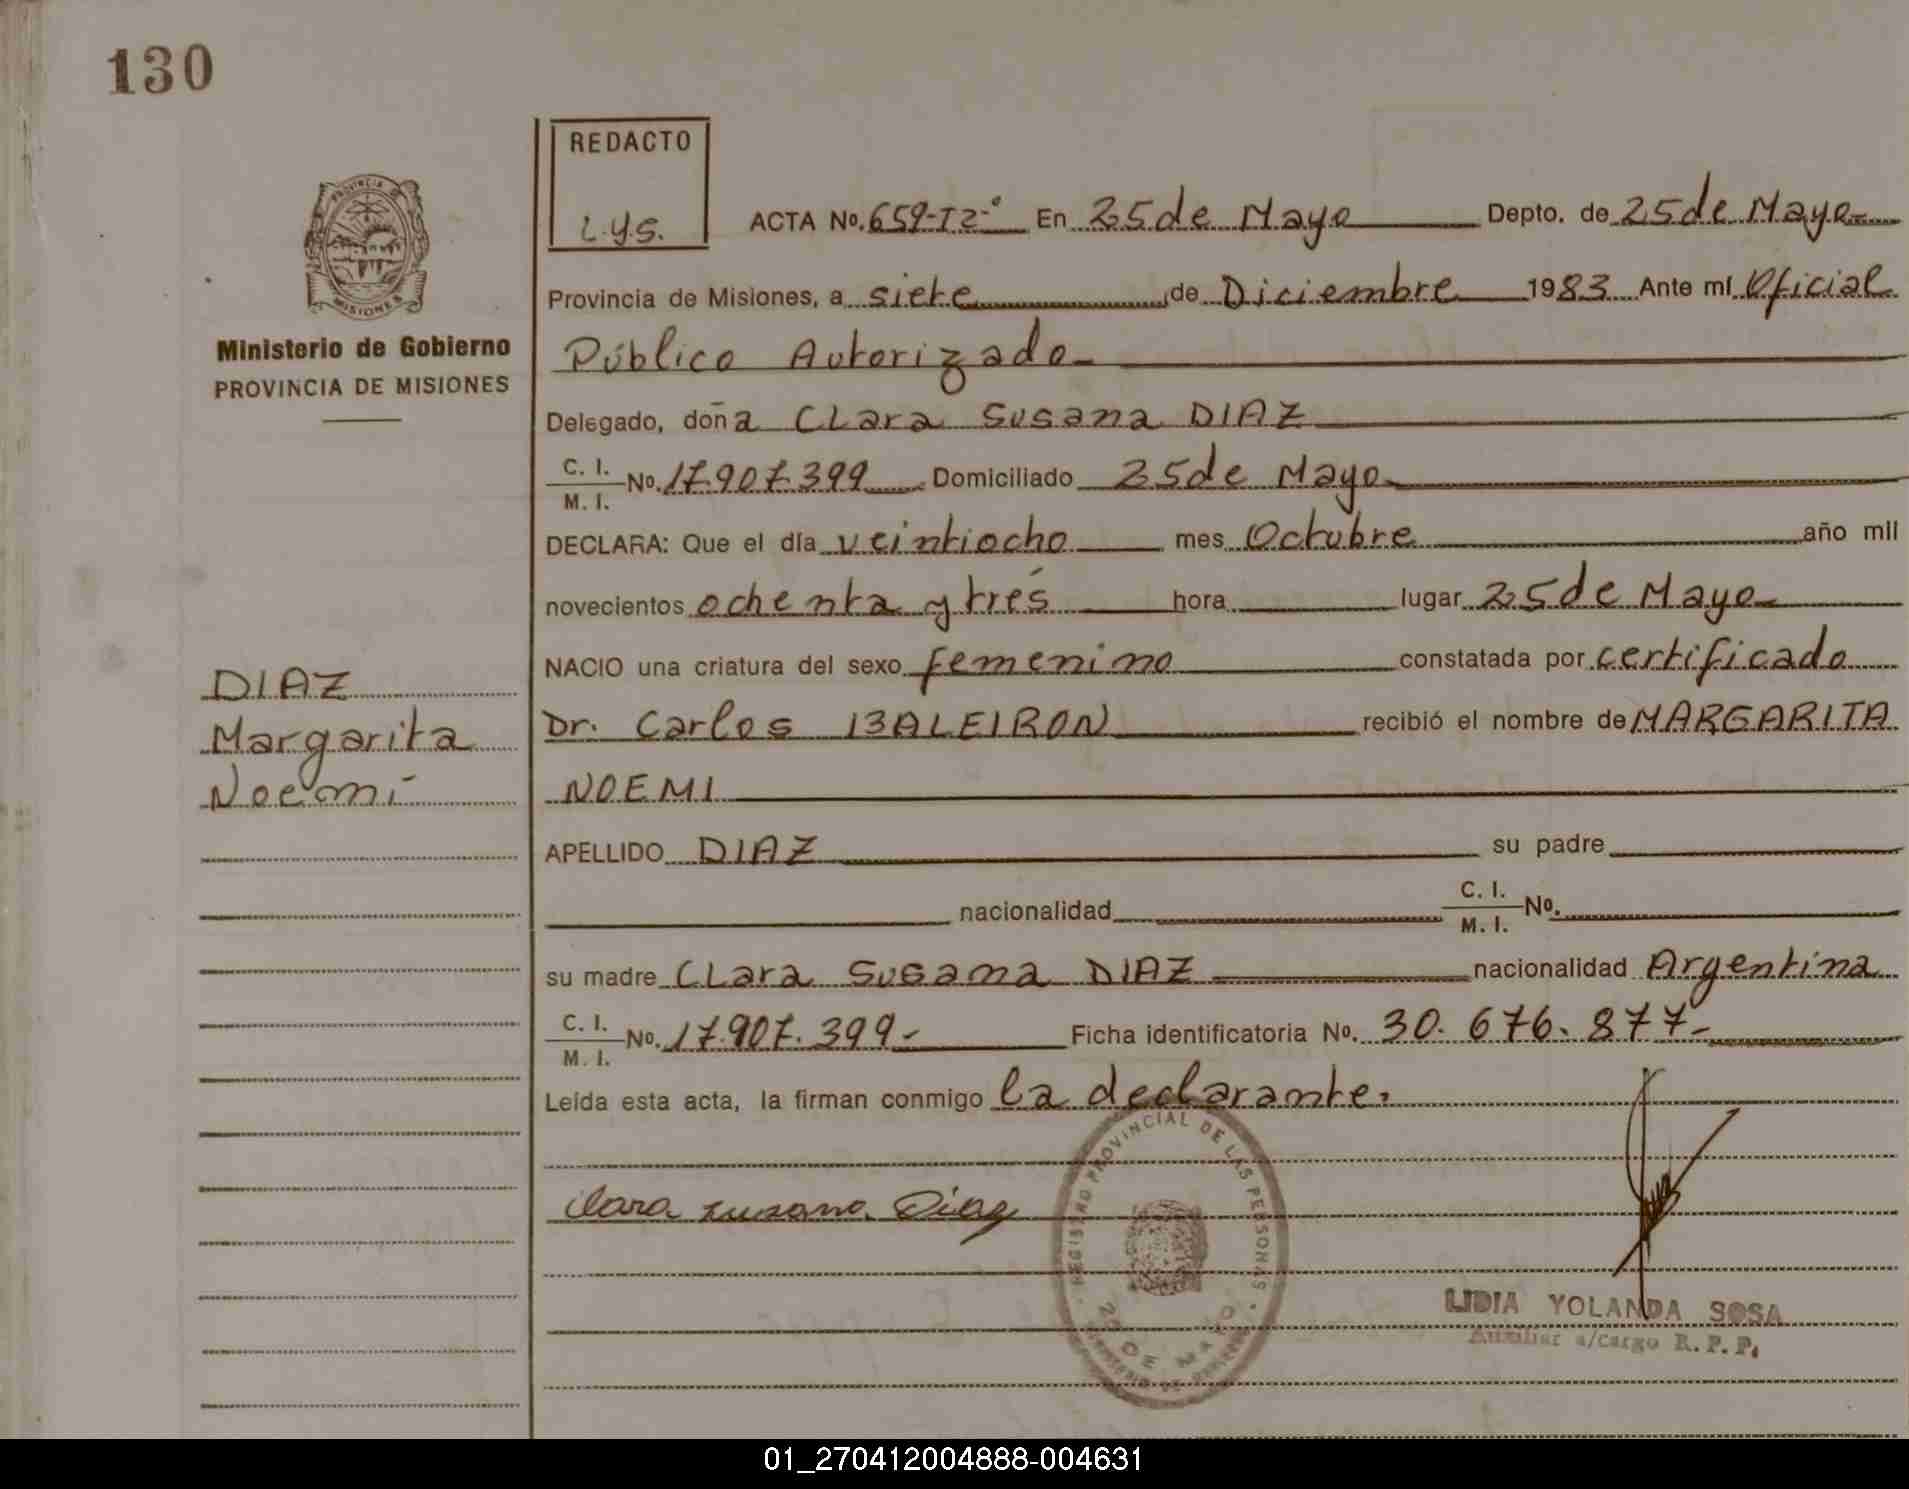 130
REDACTO
L.Y.S.
PROVINCIA DE
MISIONES
Ministerio de Gobierno
PROVINCIA DE MISIONES
ACTA No. 659-T2-° En 25 de Mayo Depto. de 25 de Mayo-
Provincia de Misiones, a siete de Diciembre 1983 Ante mí Oficial
Público Autorizado-
Delegado, doña Clara Susana DIAZ
C. I. / M. I. No. 17.907.399 Domiciliado 25 de Mayo-
DECLARA: Que el día veintiocho mes Octubre año mil
novecientos ochenta y trés hora lugar 25 de Mayo-
NACIO una criatura del sexo femenino constatada por certificado
Dr. Carlos BALEIRON recibió el nombre de MARGARITA
NOEMI
APELLIDO DIAZ su padre
nacionalidad C. I. / M. I. No.
su madre Clara Susana DIAZ nacionalidad Argentina
C. I. / M. I. No. 17.907.399- Ficha identificatoria No. 30.676.877-
Leída esta acta, la firman conmigo la declarante.
DIAZ
Margarita
Noemí
Clara Susana Diaz
REGISTRO PROVINCIAL DE LAS PERSONAS
25 DE MAYO
LIDIA YOLANDA SOSA
Auxiliar a/cargo R. P. P.
01_270412004888-004631